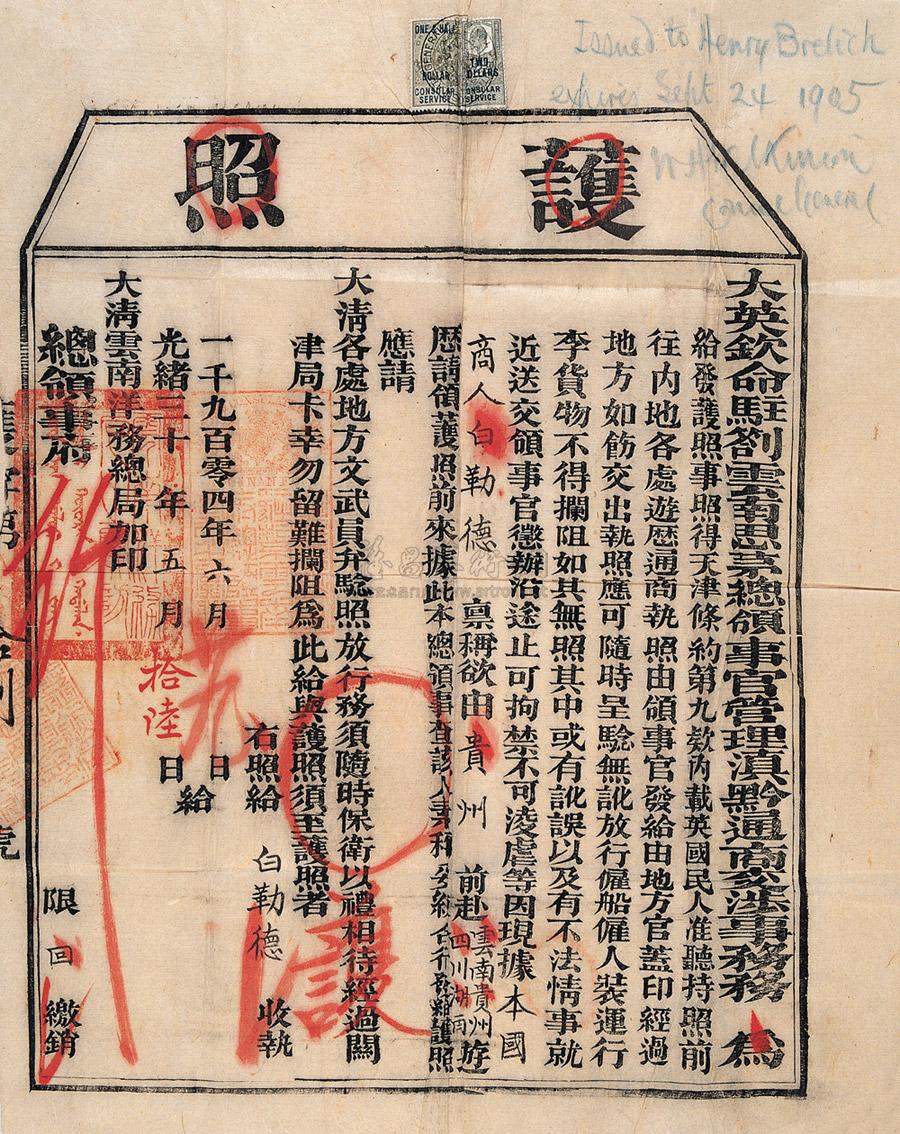 Issued to Henry Brelich
expires Sept 24 1905
Consul General
ONE & HALF DOLLAR CONSULAR SERVICE
TWO DOLLARS CONSULAR SERVICE
護照
大英欽命駐劄雲南思茅總領事官管理滇黔通商交涉事務 為
給發護照事照得天津條約第九欵內載英國民人准聽持照前
往內地各處遊歷通商執照由領事官發給由地方官蓋印經過
地方如飭交出執照應可隨時呈驗無訛放行僱船僱人裝運行
李貨物不得攔阻如其無照其中或有訛誤以及有不法情事就
近送交領事官懲辦沿途止可拘禁不可凌虐等因現據本國
商人白勒德 稟稱欲由貴州 前赴雲南貴州四川湖南遊
歷請領護照前來據此本總領事查該人 護照
應請
大清各處地方文武員弁驗照放行務須隨時保衛以禮相待經過關
津局卡幸勿留難攔阻為此給與護照須至護照者
右照給 白勒德 收執
一千九百零四年六月 日
光緒三十年五月拾陸日給
大清雲南洋務總局加印
總領事府 限 回 繳銷
護